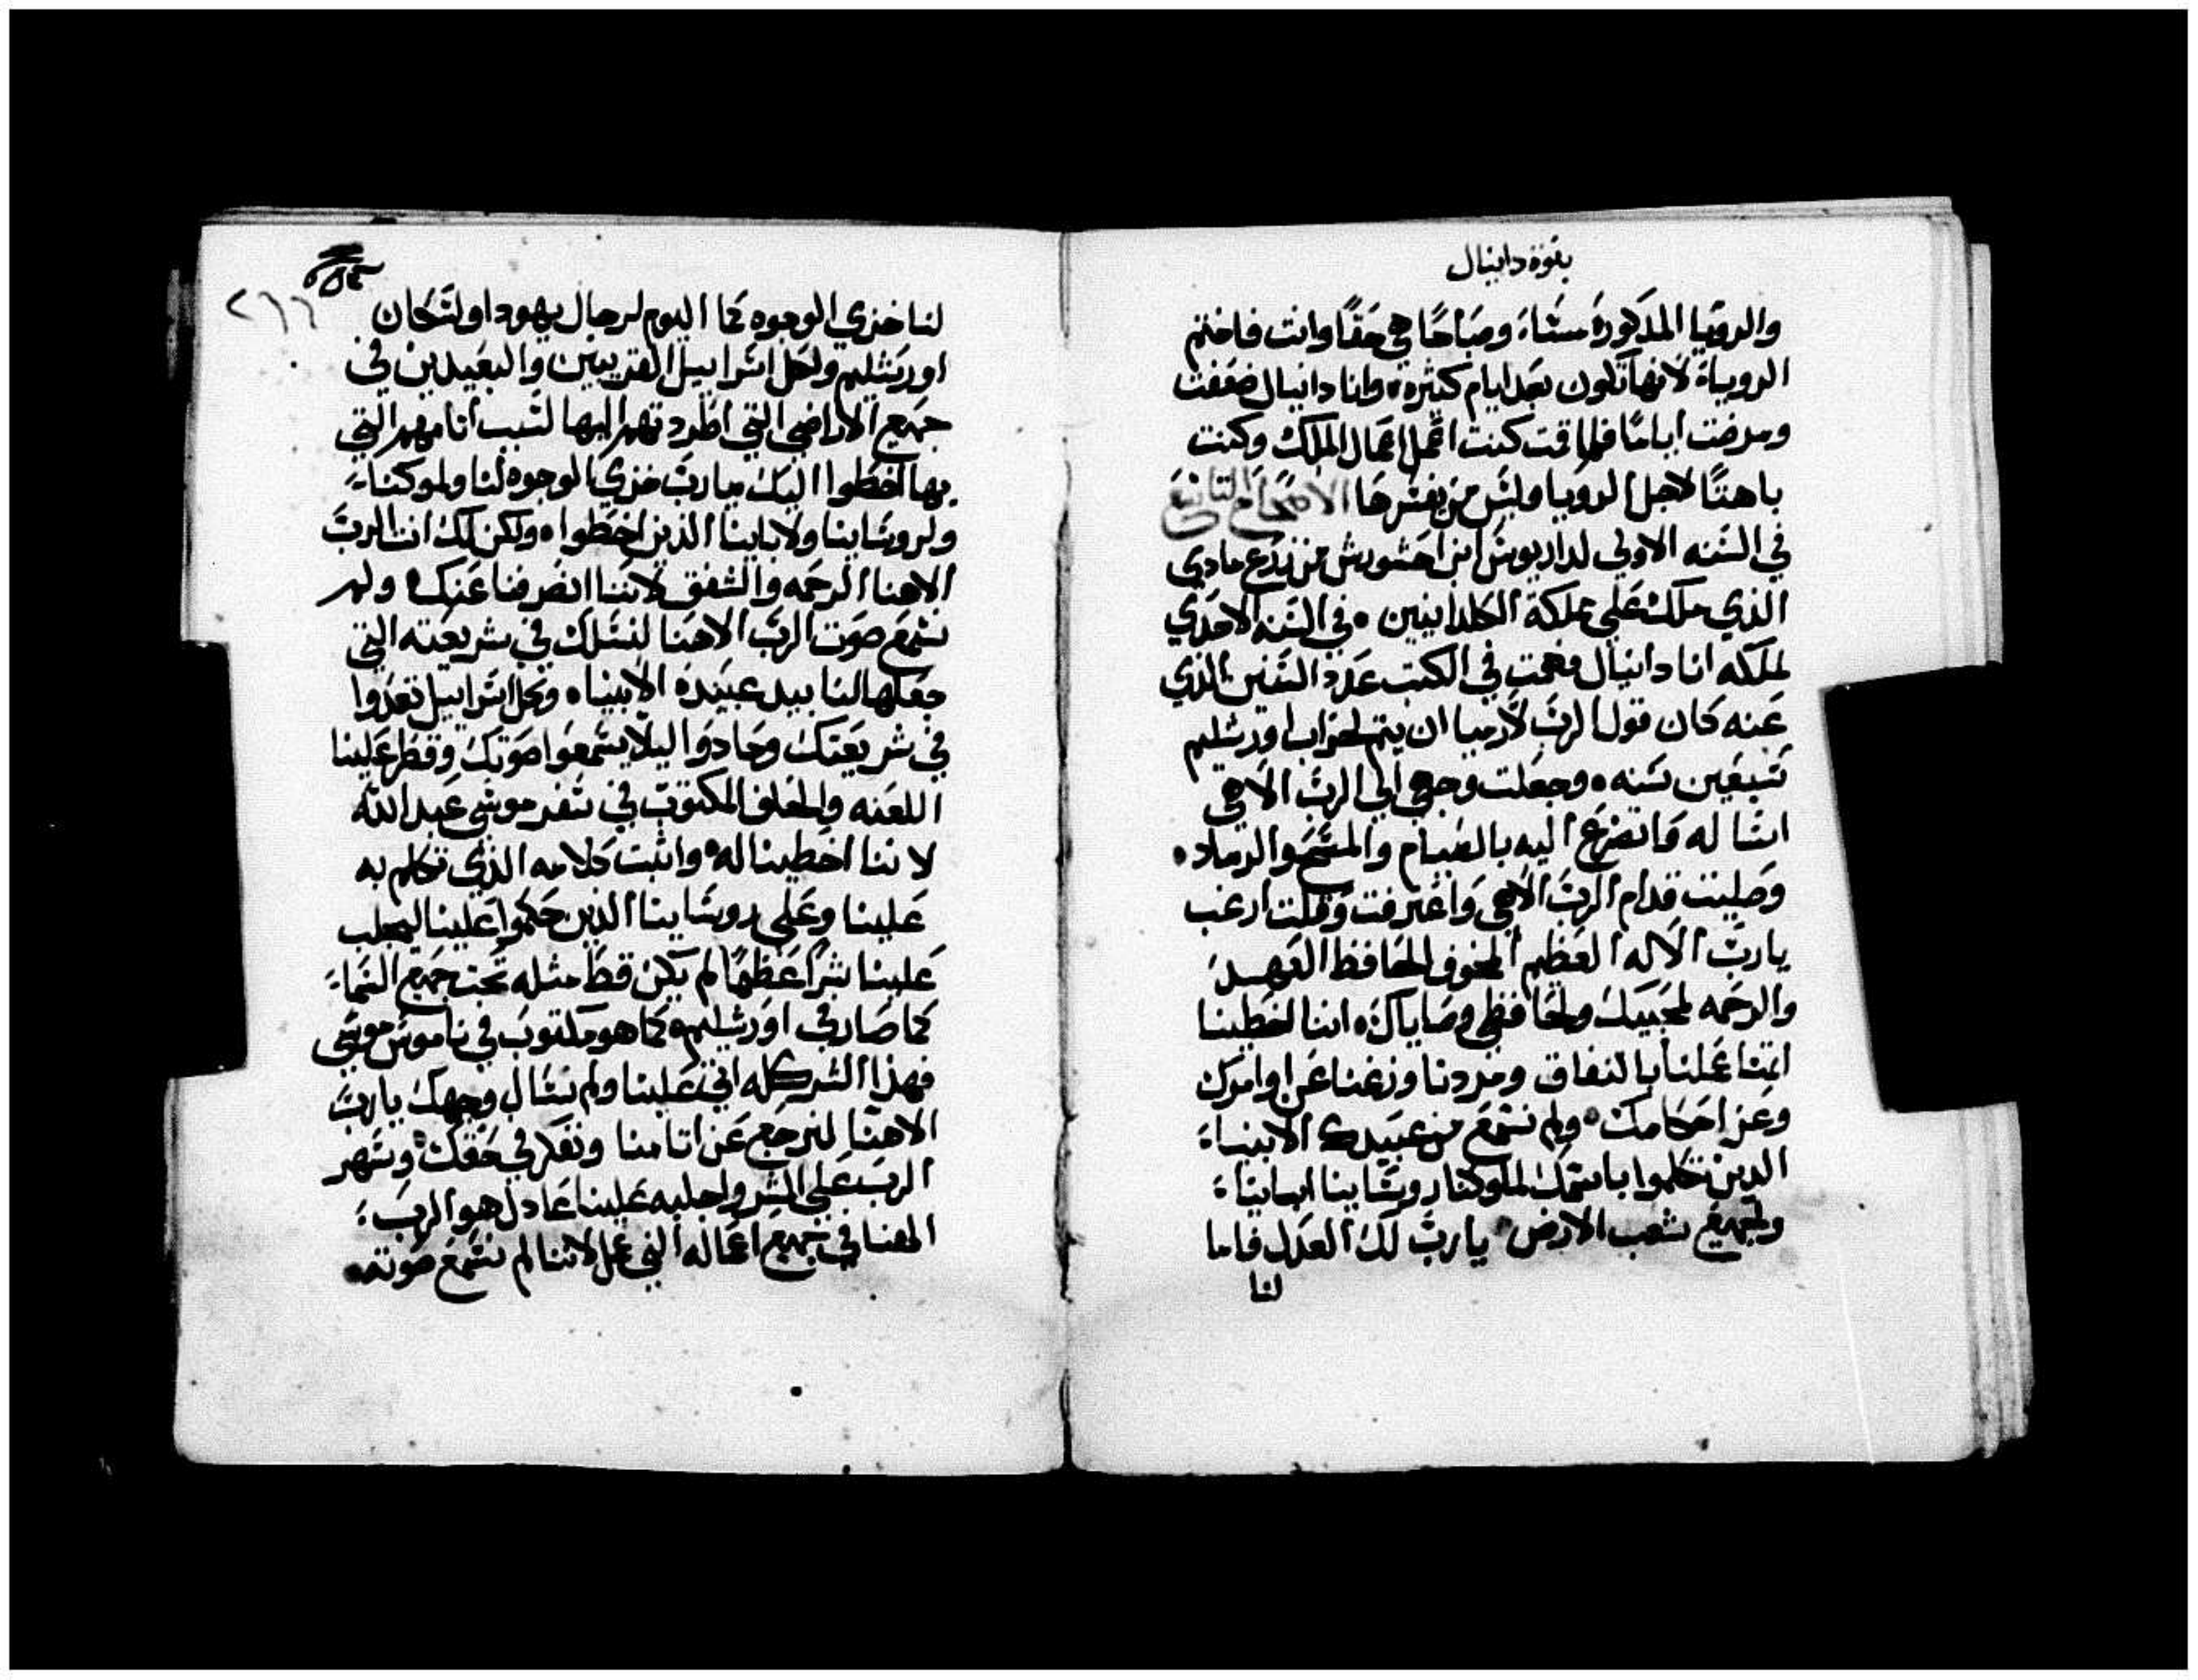 بنوة دانيال
والرويا المذكورة مساءً وصباحًا هي حقًا وانت فاختم
الروياة لانها تكون بعد ايام كثيره، وانا دانيال ضعفت
ومرضت ايامًا فلما قمت كنت اعمل اعمال الملك وكنت
باهتًا لاجل الرويا وليس من يفسرها الاصحاح التاسع
في السنه الاولي لداريوس ابن احشورش من زرع مادي
الذي ملك علي مملكة الكلدانيين ٠ في السنه الاحدي
لملكه انا دانيال فهمت في الكتب عدد السنين الذي
عنه كان قول الرب لارميا ان يتم لخراب اورشليم
سبعين سنه ٠ وجعلت وجهي الي الرب الاهي
اسأله واتضرع اليه بالصيام والمسح والرماد ٠
وصليت قدام الرب الاهي واعترفت وقلت ارغب
يارب الاله العظيم المخوف الحافظ العهد
والرحمه لمحبيك ولحافظي وصاياك ٠ اننا اخطينا
اتمنا عملنا بالنفاق ومردنا وزغنا عن اوامرك
وعن احكامك ٠ ولم نسمع من عبيدك الانبياء
الدين تكلموا باسمك لملوكنا روسائنا ابائنا
ولجميع شعب الارض ٠ يارب لك العدل فاما
لنا
٢٦٦
لنا خزي الوجوه كما اليوم لرجال يهودا ولسكان
اورشليم ولكل اسراييل القريبين والبعيدين في
جميع الاراضي التي اطردتهم اليها لسبب اثامهم التي
بها اخطوا اليك يارب خزي الوجوه لنا ولملوكنا
ولروساينا ولاباينا الذين اخطوا ٠ ولكن لك انت الرب
الاهنا الرحمه والشفق لاننا انصرفنا عنك ولم
نسمع صوت الرب الاهنا لنسلك في شريعته التي
جعلها لنا بيد عبيده الانبياء ٠ وكل اسراييل تعدوا
في شريعتك وحادوا ليلا يسمعوا صوتك وقطر علينا
اللعنه والحلف المكتوب في سفر موسي عبد الله
لاننا اخطينا له ٠ واثبت كلامه الذي تكلم به
علينا وعلي روساينا الذين حكموا علينا ليجلب
علينا شرًا عظيمًا لم يكن قط مثله تحت جميع السماء
كما صار في اورشليم ٠ كما هو مكتوب في ناموس موسي
فهذا الشر كله اتي علينا ولم نسال وجهك يارب
الاهنا لنرجع عن اتامنا ونفكر في حقك وسهر
الرب علي الشر واجلبه علينا عادل هو الرب
الهنا في جميع اعماله التي عمل لاننا لم نسمع صوته ٠